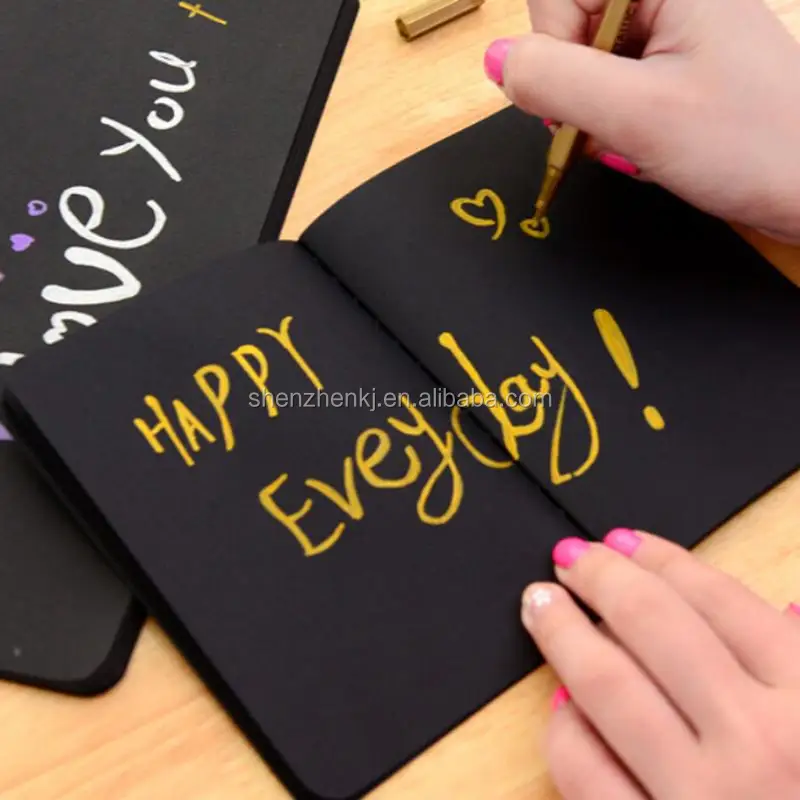 HAPPY
Eveyday!
ove you
shenzhenkj.en.alibaba.com